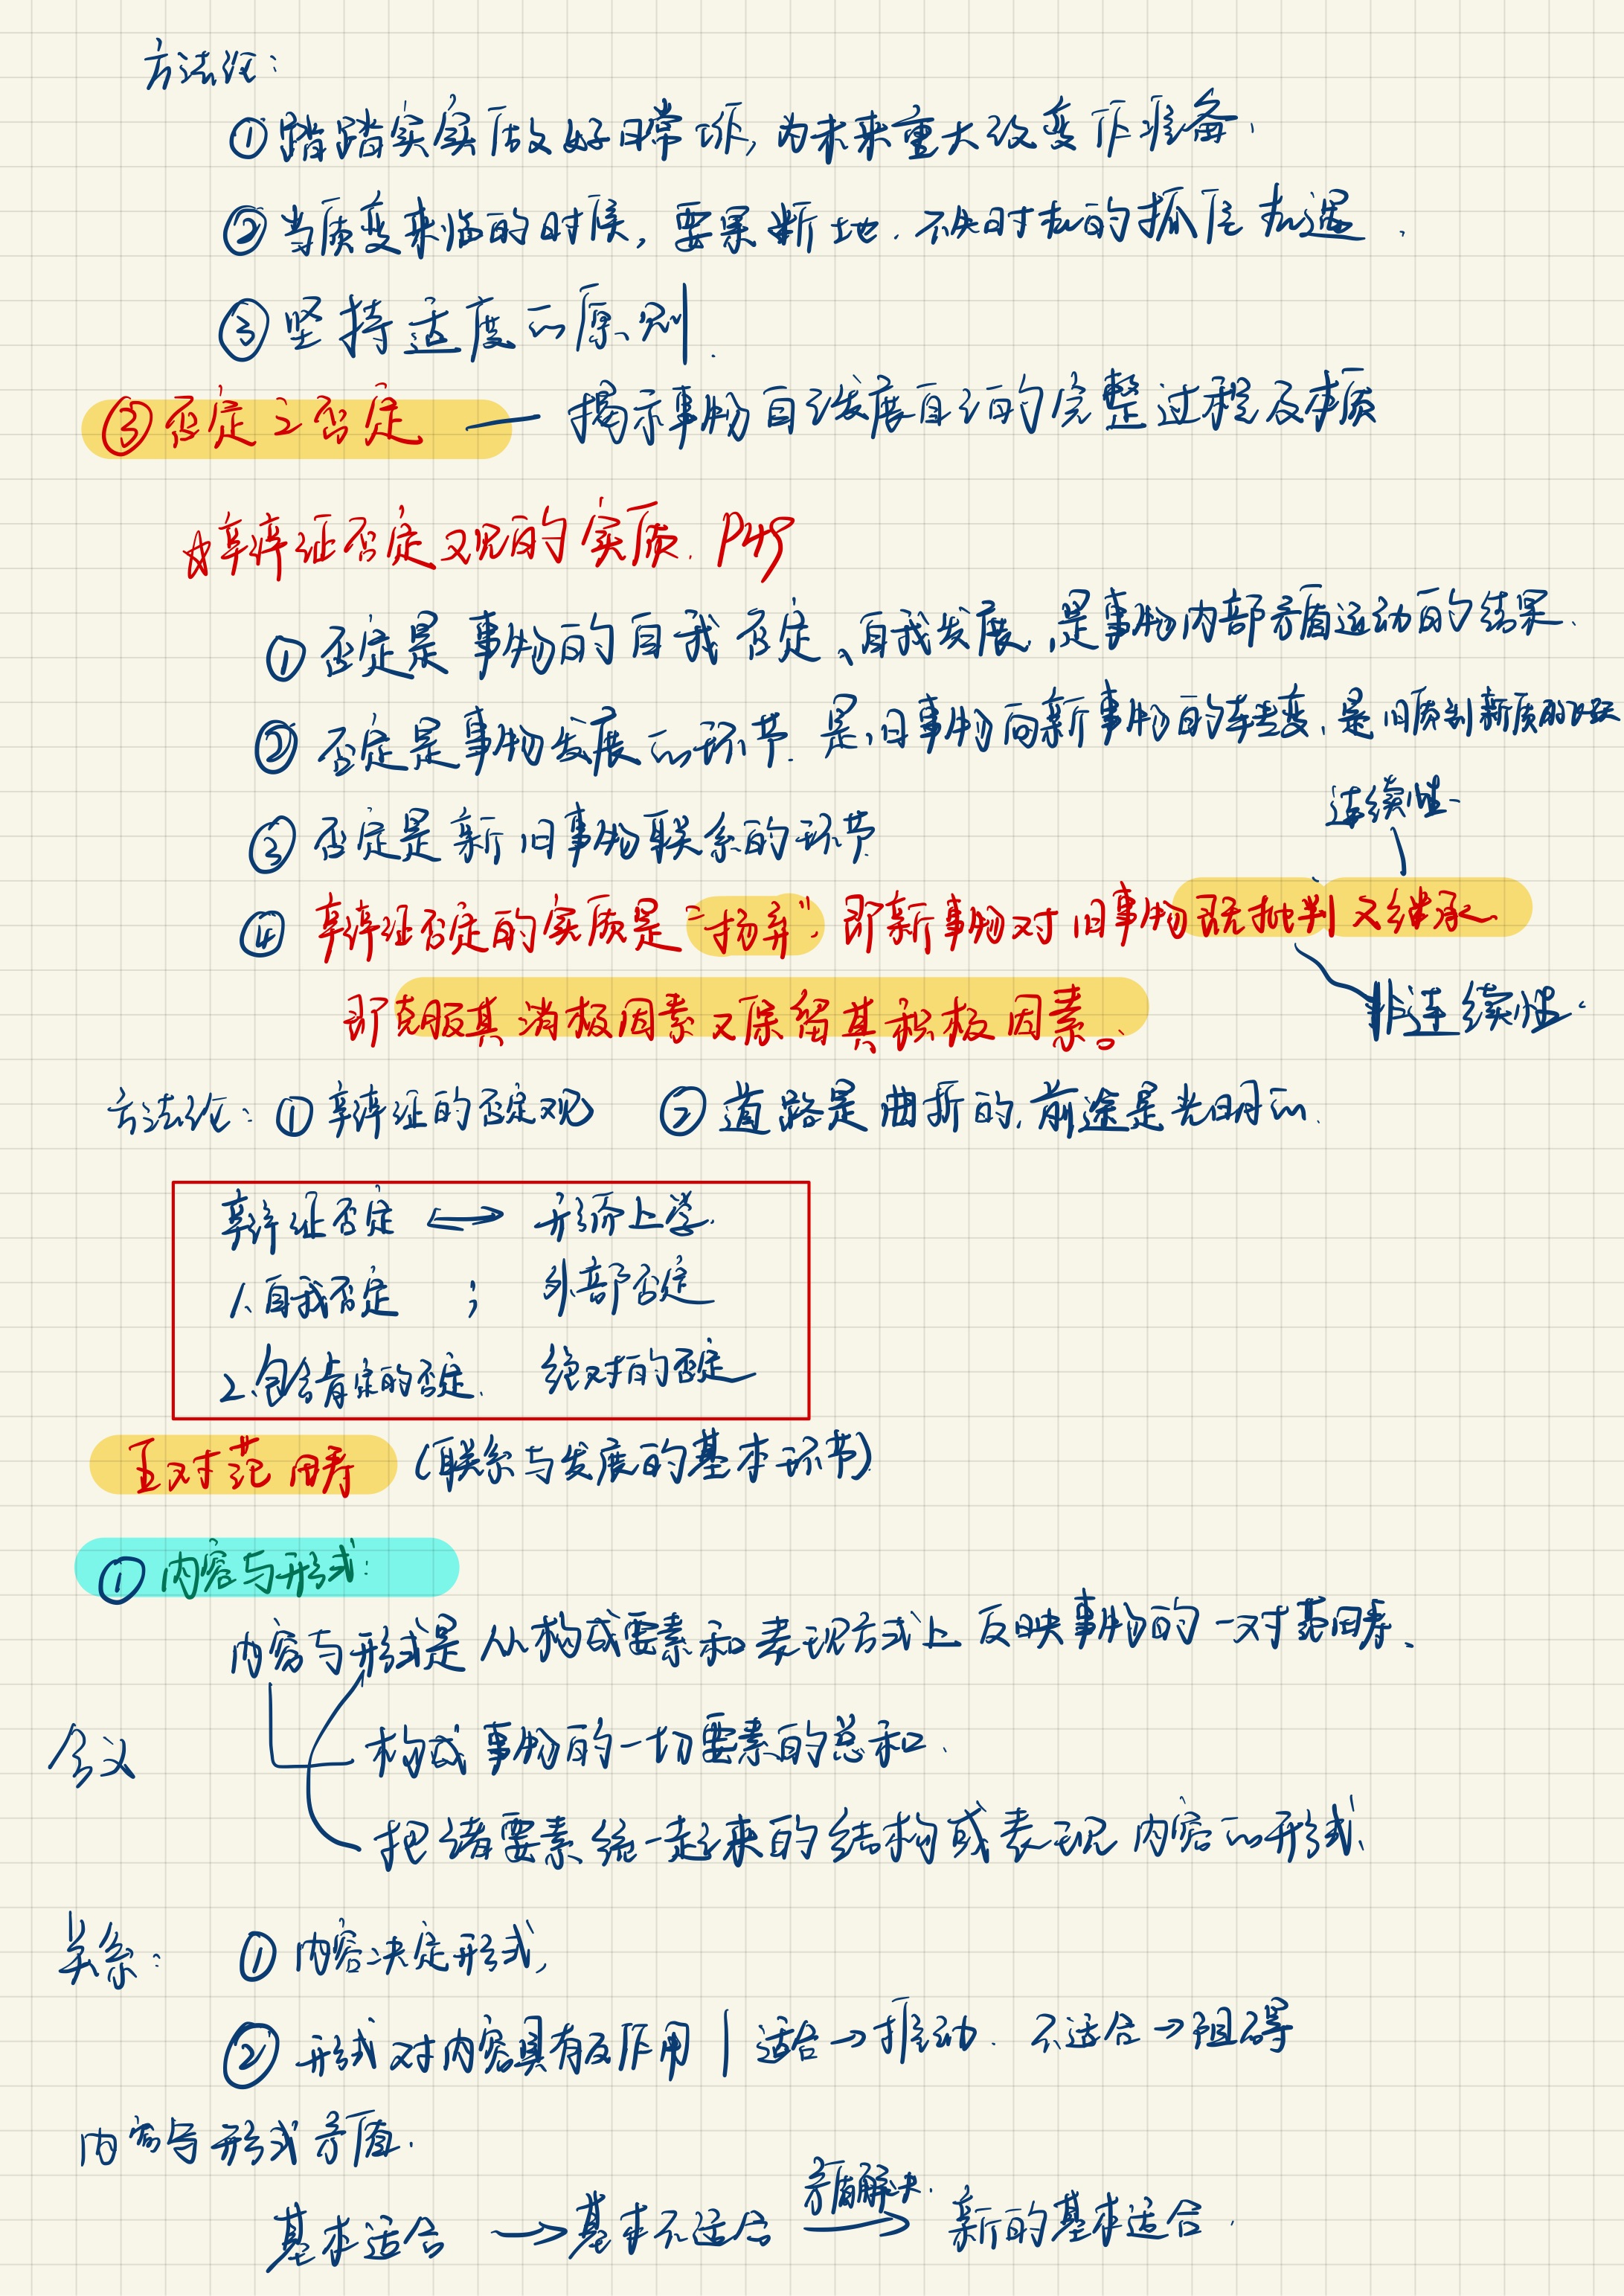 方法论：
①踏踏实实做好日常工作,为未来重大改变作准备.
②当质变来临的时候,要果断地.不失时机的抓住机遇.
③坚持适度的原则.
③否定之否定 —— 揭示事物自己发展自己的完整过程及本质
☆辩证否定观的实质. P45
①否定是事物的自我否定、自我发展,是事物内部矛盾运动的结果.
②否定是事物发展的环节.是旧事物向新事物的转变,是旧质到新质的飞跃
③否定是新旧事物联系的环节
连续性
④辩证否定的实质是“扬弃”,即新事物对旧事物既批判又继承
即克服其消极因素又保留其积极因素。
非连续性.
方法论：①辩证的否定观 ②道路是曲折的,前途是光明的.
辩证否定 ⟷ 形而上学.
1.自我否定 ； 外部否定
2.包含肯定的否定. 绝对的否定
五对范畴（联系与发展的基本环节）
①内容与形式：
内容与形式是从构成要素和表现方式上反映事物的一对范畴.
含义
构成事物的一切要素的总和.
把诸要素统一起来的结构或表现内容的形式.
关系： ①内容决定形式,
②形式对内容具有反作用 | 适合→推动. 不适合→阻碍
内容与形式矛盾.
矛盾解决.
基本适合 → 基本不适合 → 新的基本适合.